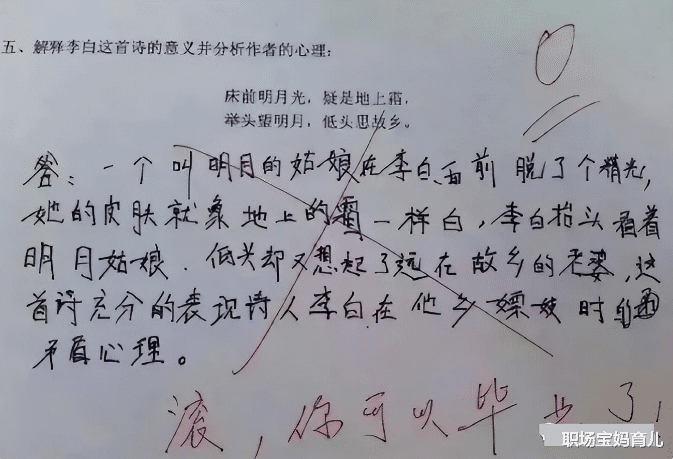 五、解释李白这首诗的意义并分析作者的心理：
床前明月光，疑是地上霜，
举头望明月，低头思故乡。
0
答：一个叫明月的姑娘在李白面前脱了个精光，
她的皮肤就象地上的霜一样白，李白抬头看着
明月姑娘．低头却又想起了远在故乡的老婆，这
首诗充分的表现诗人李白在他乡嫖妓时的
矛盾心理。
滚，你可以毕业了！
职场宝妈育儿